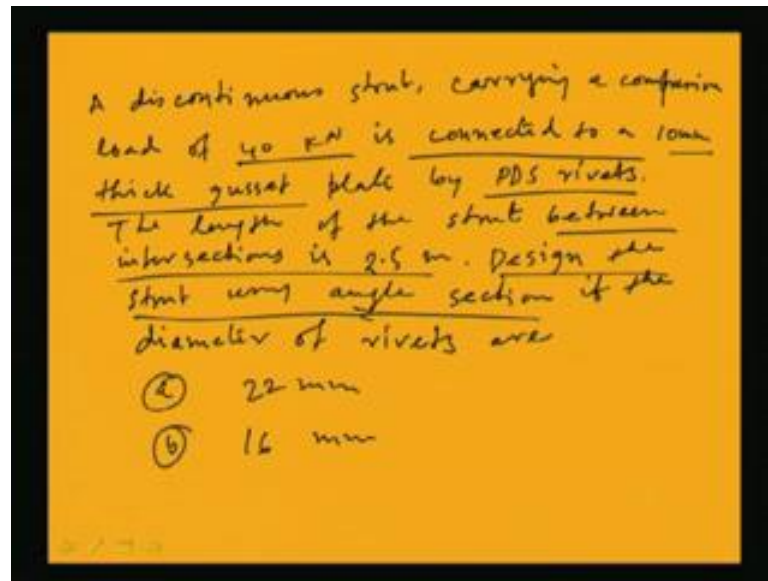 A discontinuous strut, carrying a compression
load of 40 KN is connected to a 10mm
thick gusset plate by PDS rivets.
The length of the strut between
intersections is 2.5 m. Design the
strut using angle section if the
diameter of rivets are
(a) 22 mm
(b) 16 mm